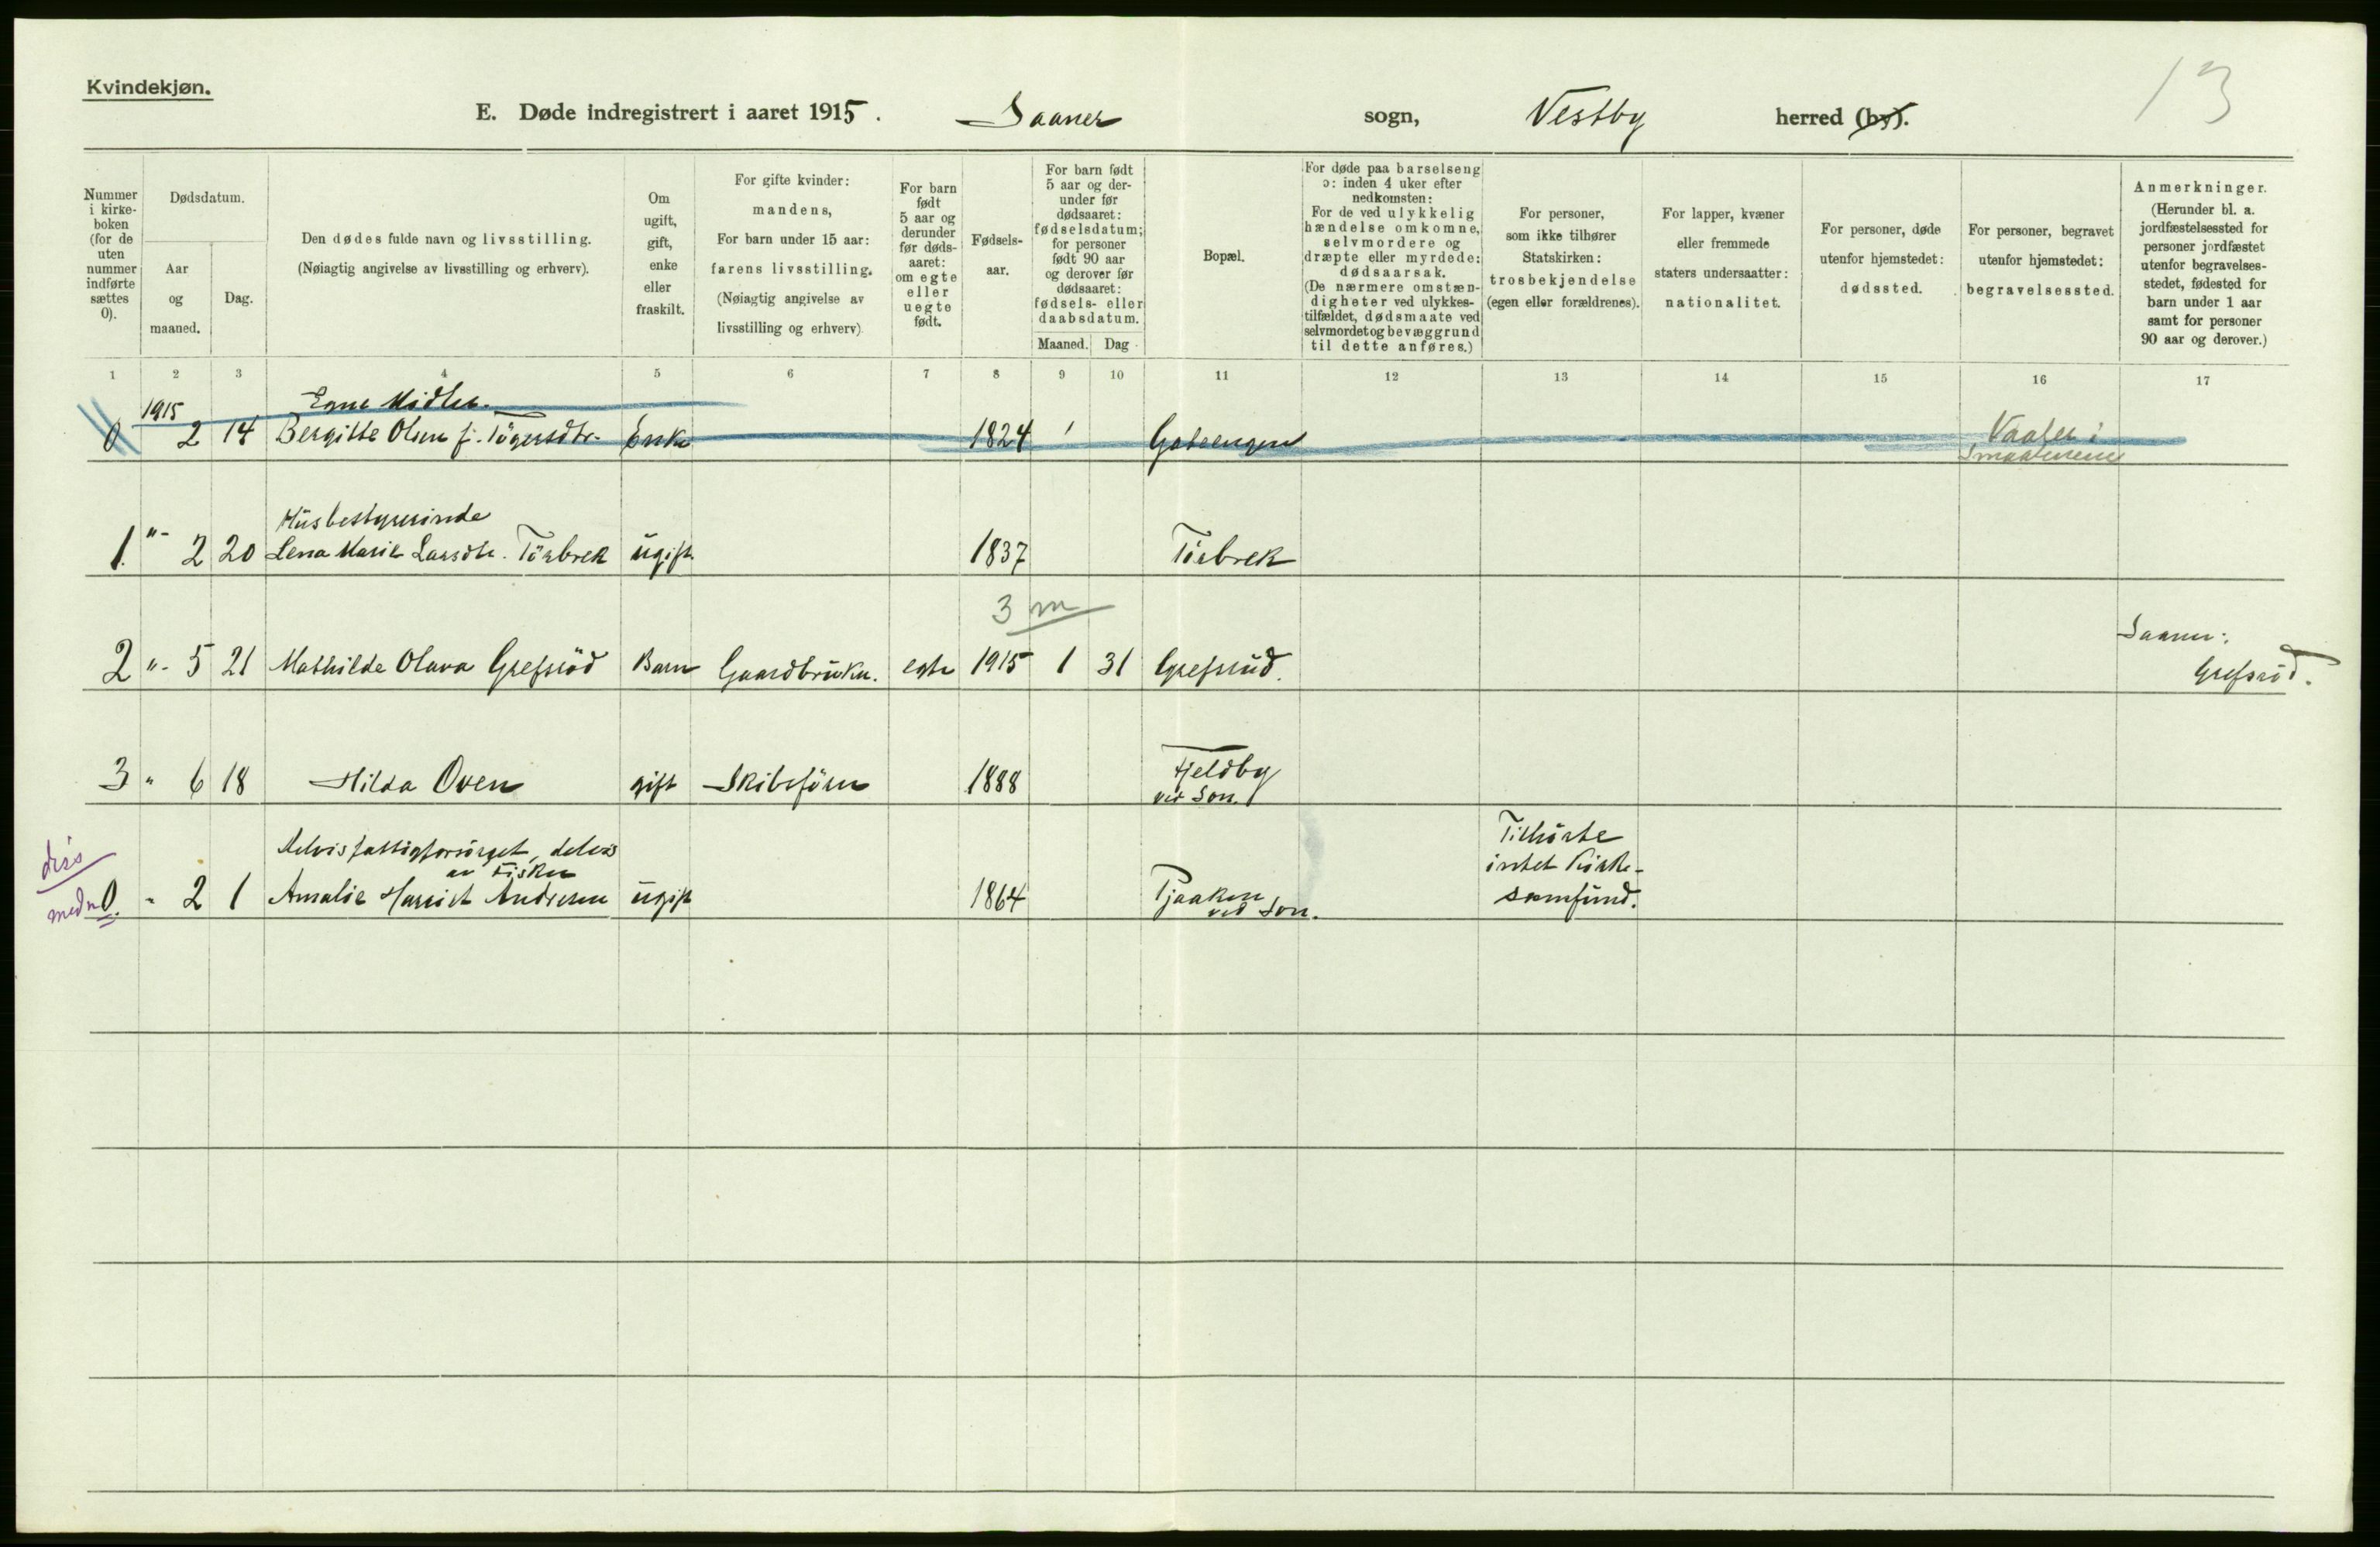 Kvindekjøn.
13
E. Døde indregistrert i aaret 1915. Saaner sogn, Vestby herred (by).
Nummer i kirke-boken (for de uten nummer indførte sættes 0).
Dødsdatum.
Aar og maaned.
Dag.
Den dødes fulde navn og livsstilling.
(Nøiagtig angivelse av livsstilling og erhverv).
Om ugift, gift, enke eller fraskilt.
For gifte kvinder: mandens,
For barn under 15 aar: farens livsstilling.
(Nøiagtig angivelse av livsstilling og erhverv)
For barn født 5 aar og derunder før døds-aaret: om egte eller uegte født.
Fødsels-aar.
For barn født 5 aar og der-under før dødsaaret: fødselsdatum; for personer født 90 aar og derover før dødsaaret: fødsels- eller daabsdatum.
Maaned. Dag.
Bopæl.
For døde paa barselseng ɔ: inden 4 uker efter nedkomsten:
For de ved ulykkelig hændelse omkomne, selvmordere og dræpte eller myrdede: dødsaarsak.
(De nærmere omstæn-digheter ved ulykkes-tilfældet, dødsmaate ved selvmordet og bevæggrund til dette anføres.)
For personer, som ikke tilhører Statskirken: trosbekjendelse (egen eller forældrenes).
For lapper, kvæner eller fremmede staters undersaatter: nationalitet.
For personer, døde utenfor hjemstedet: dødssted.
For personer, begravet utenfor hjemstedet: begravelsessted.
Anmerkninger.
(Herunder bl. a. jordfæstelsessted for personer jordfæstet utenfor begravelses-stedet, fødested for barn under 1 aar samt for personer 90 aar og derover.)
1 2 3 4 5 6 7 8 9 10 11 12 13 14 15 16 17
1915 Egne Midler.
0 2 14 Bergitte Olsen f. Tögersdtr. Enke 1824 Gateengen Vaaler i
Smaalenene
Husbestyrerinde
1. "- 2 20 Lena Marie Larsdtr. Törbrek ugift 1837 Törbrek
3 m
Saaner:
2 "- 5 21 Mathilde Olava Grefsröd Barn Gaardbruker. egte 1915 1 31 Grefsrud. Grefsröd.
3 " 6 18 Hilda Oven gift Skibsförer 1888 Fjeldby
ved Son.
Delvis fattigforsörget, delvis Tilhörte
av Fisker intet Kirke-
diss
med n 0. " 2 1 Amalie Harriet Andresen ugift 1864 Tjaaken samfund.
ved Son.